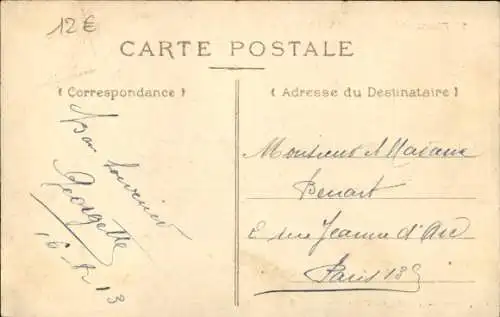 12 €
CARTE POSTALE
( Correspondance )
( Adresse du Destinataire )
Bon Souvenir
Georgette
Monsieur et Madame
Benart
rue Jeanne d'Arc
Paris 13e